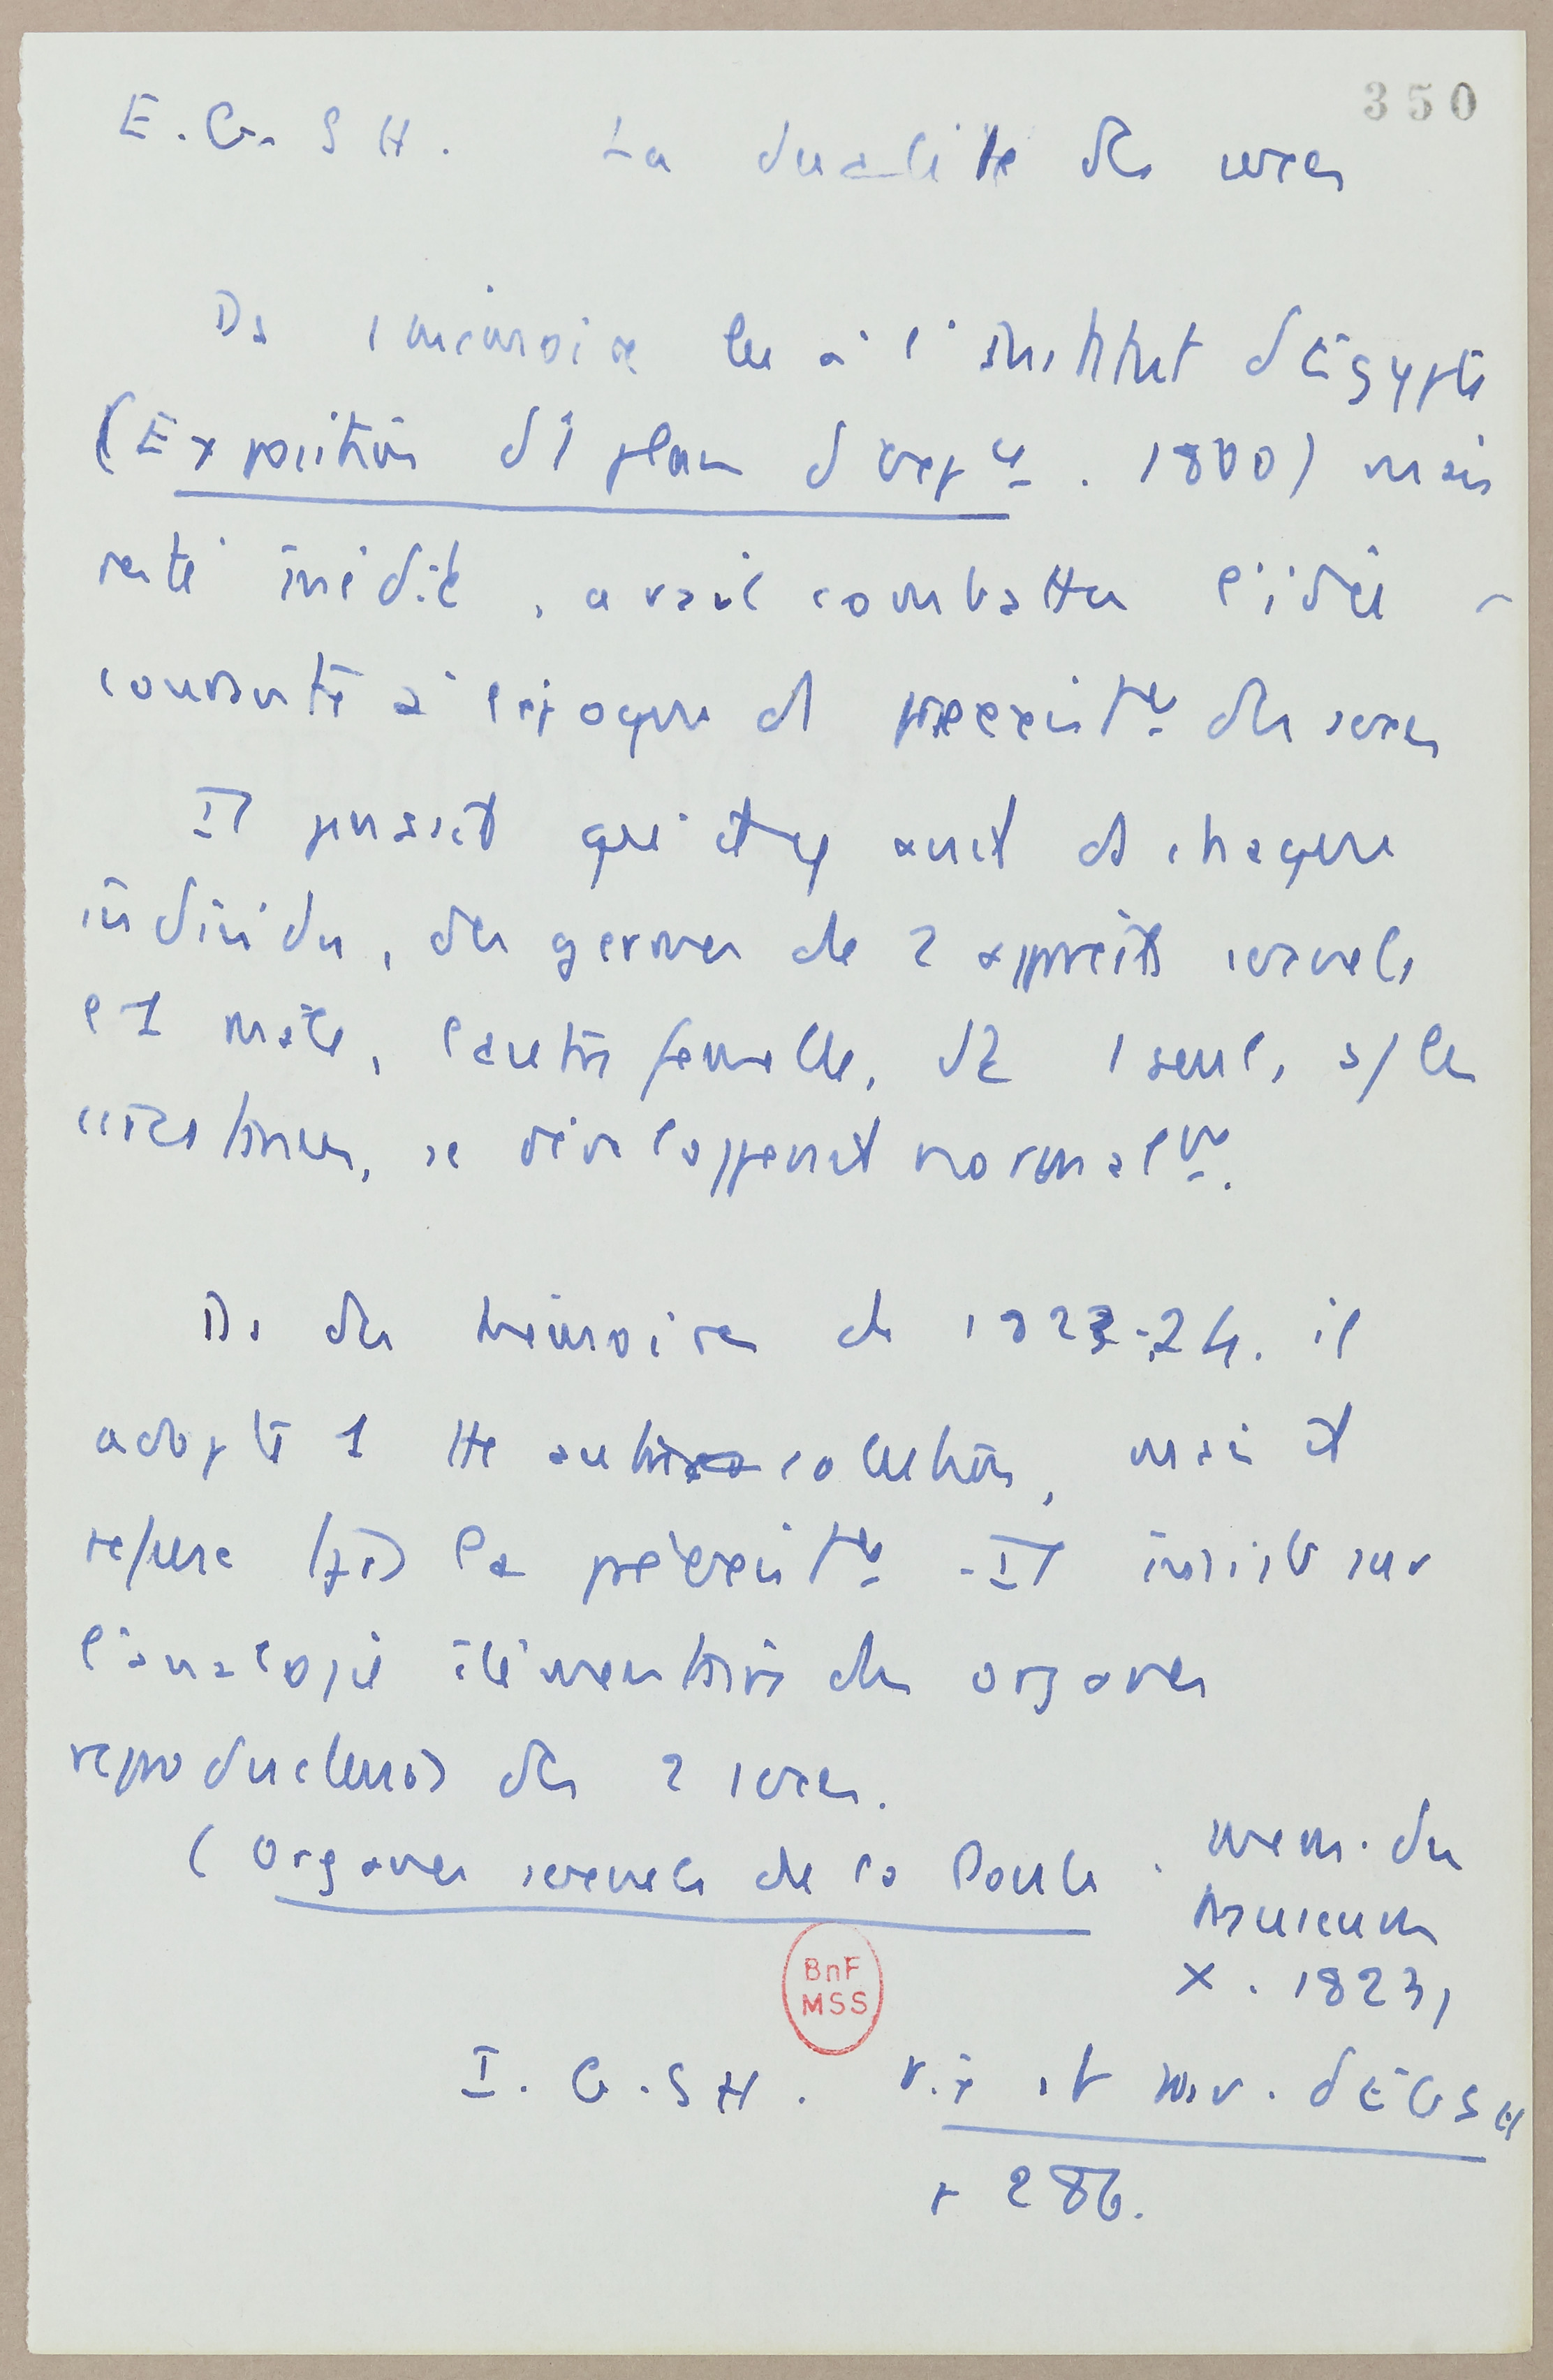 350
E. G. S H. La dualité des sexes
Ds 1 mémoire lu à l'Institut d'Egypte
(Exposition d'1 plan d'expce. 1800) mais
resté inédit, avait combattu l'idée
courante à l'époque d préexistce des sexes
Il pensait qu'il y avait ds chaque
individu, des germes de 2 appareils sexuels
l'1 mâle, l'autre femelle, dt 1 seul, s/ les
circstances, se développerait normalmt.
Ds des mémoires de 1822-24. il
adopte 1 tt autre solution, mais il
refuse tjs la préexistce - Il insiste sur
l'analogie élémentaire des organes
reproducteurs des 2 sexes.
(Organes sexuels de la Poule. Mem. du
Museum
X. 1823)
BnF
MSS
I. G. S H. Vie et trav. d'E G S H
p 286.